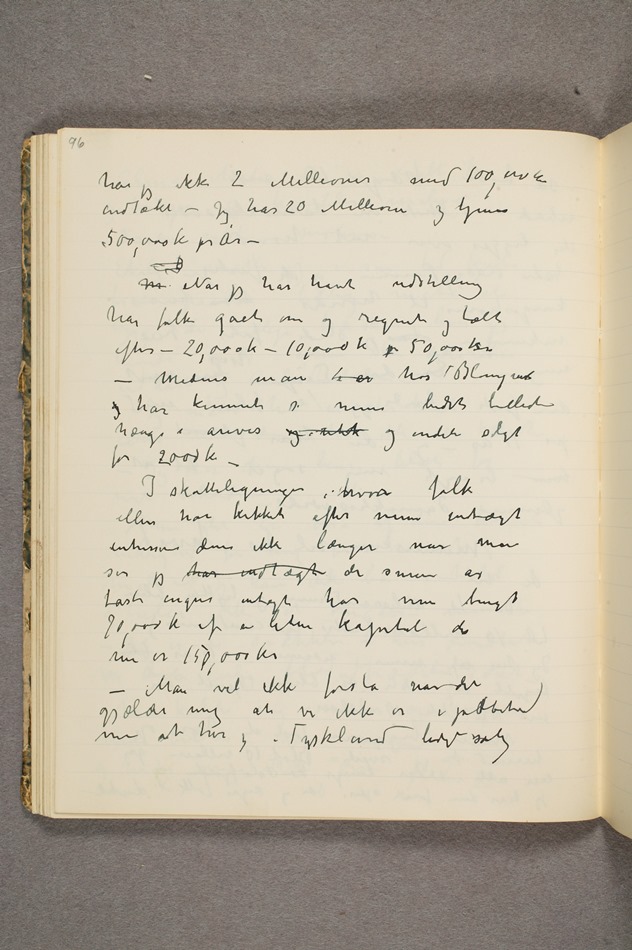 96
har jeg ikk 2 Millioner med 100,000 k
indtækt – Jeg har 20 Millioner og tjener
500,000 k pr År –
Når jeg har havt udstilling
har folk gået om og regnet og talt
efter – 20,000 k – 10,000 k 50,000 kr
– Medens man hos Blomqvist
og har kunnet se mine bedste billeder
hænge i årevis og endelig solgt
for 2000 k –
I skatteligningen, hvor folk
ellers har kikket efter min indtægt
interesserer denne ikk længer når man
ser jeg har indtægt de smuler av
faste indtægt har man brugt
70,000 k af en liten kapital der
nu er 150,000 kr
– Man vil ikk forstå når det
gjælder mig at vi ikk er i
men at har jeg i Tyskland solg